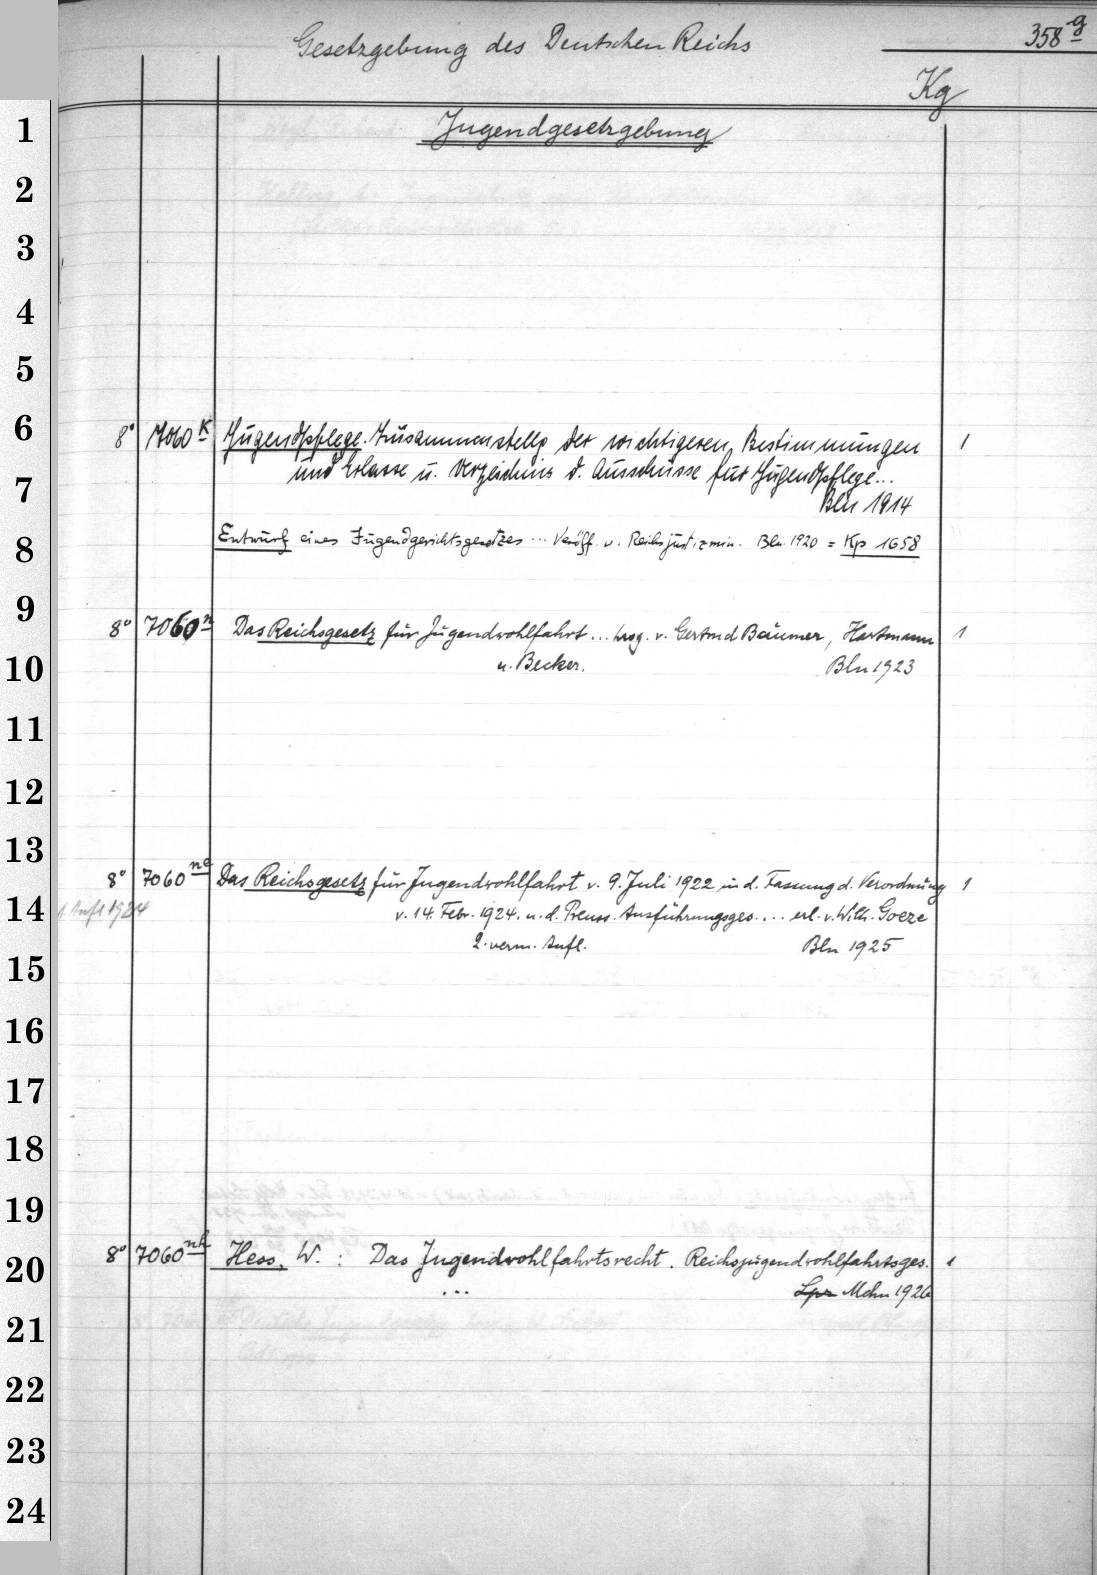 Gesetzgebung des Deutschen Reichs 358 g
Kg
1 Jugendgesetzgebung
2
3
4
5
6 8° 7060 K Jugendpflege. Zusammenstellg der wichtigeren Bestimmungen 1
und Erlasse u. Verzeichnis d. Ausschüsse für Jugendpflege...
7 Bln 1914
8 Entwurf eines Jugendgerichtsgesetzes ... Veröff. v. Reichsjustizmin. Bln. 1920 = Kp 1658
9 8° 7060 n Das Reichsgesetz für Jugendwohlfahrt ... hrsg. v. Gertrud Bäumer, Hartmann 1
10 u. Becker. Bln 1923
11
12
13
8° 7060 ne Das Reichsgesetz für Jugendwohlfahrt v. 9. Juli 1922 in d. Fassung d. Verordnung 1
14 1. Aufl 1924 v. 14. Febr. 1924. u. d. Preuss. Ausführungsges. ... erl. v. Wilh. Goeze
2. verm. Aufl. Bln 1925
15
16
17
18
19
8° 7060 nh Hess, W. : Das Jugendwohlfahrtsrecht. Reichsjugendwohlfahrtsges. 1
20 ... Lpz Mchn 1926
21
22
23
24